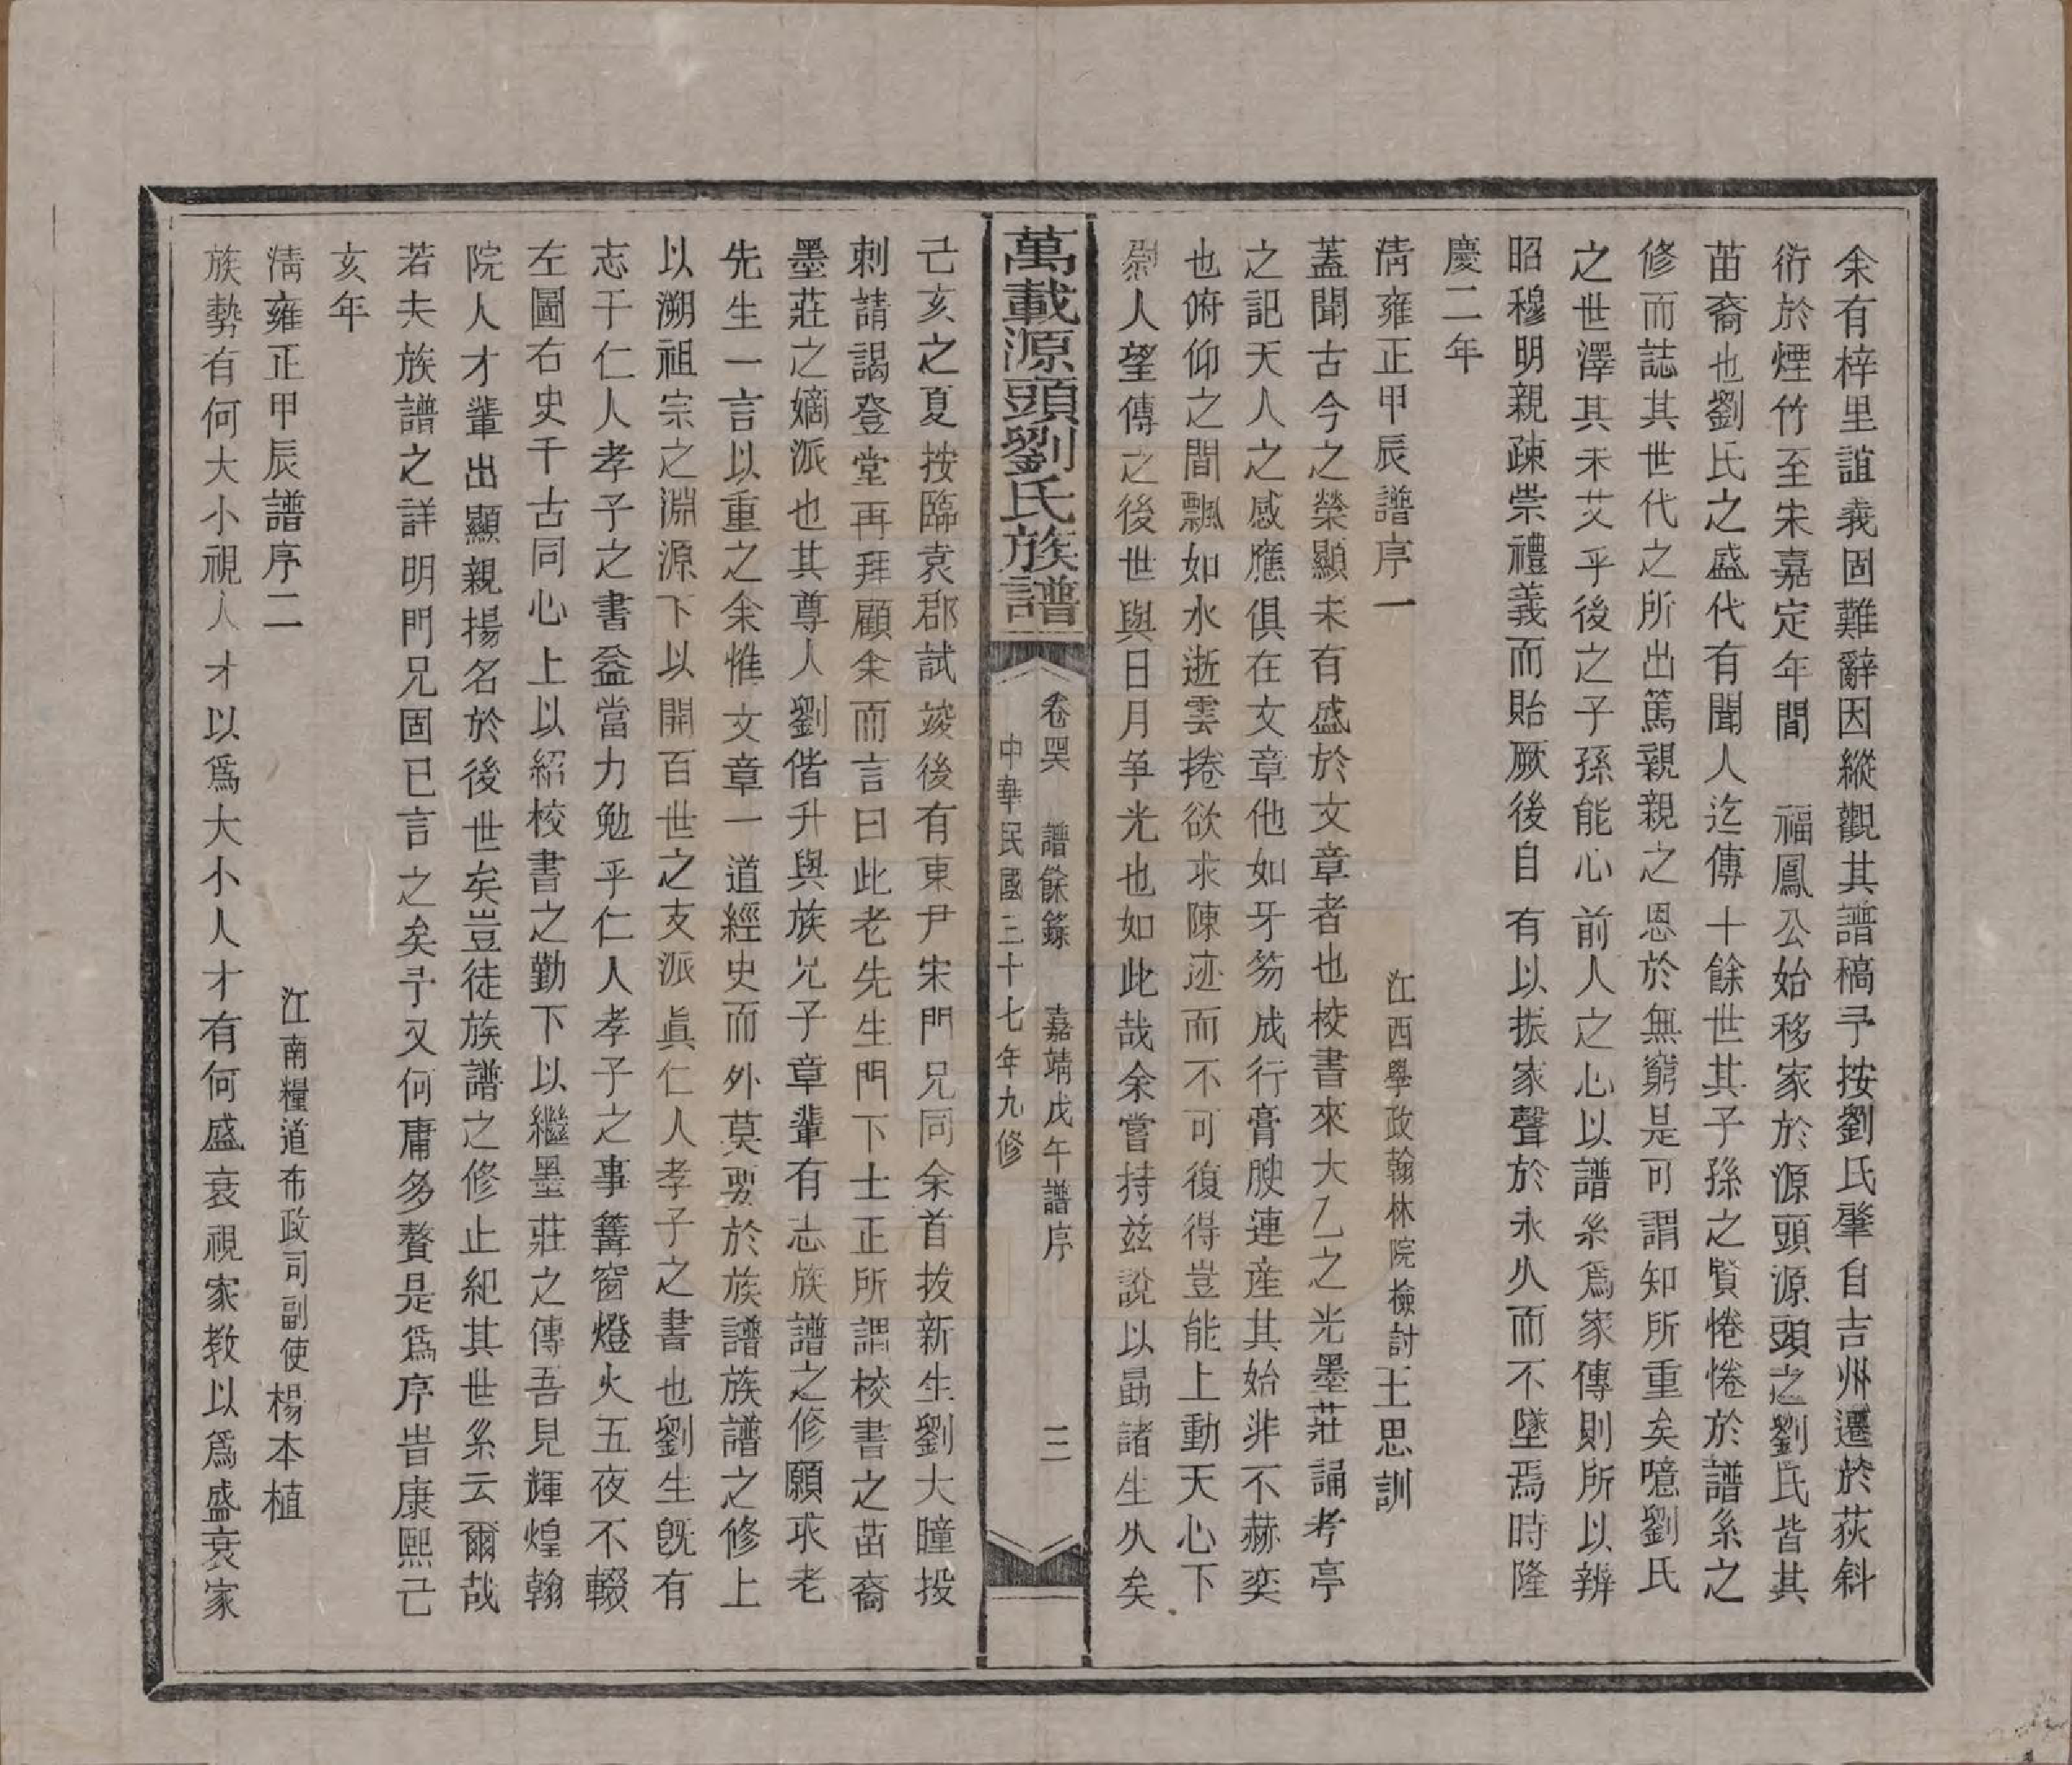 余有梓里誼義固難辭因縱觀其譜稿予按劉氏肇自吉州遷於荻斜
衍於煙竹至宋嘉定年間 福鳳公始移家於源頭源頭之劉氏皆其
苗裔也劉氏之盛代有聞人迄傳十餘世其子孫之賢惓惓於譜系之
修而誌其世代之所出篤親親之恩於無窮是可謂知所重矣噫劉氏
之世澤其未艾乎後之子孫能心前人之心以譜系爲家傳則所以辨
昭穆明親疎崇禮義而貽厥後自有以振家聲於永久而不墜焉時隆
慶二年
淸雍正甲辰譜序一 江西學政翰林院檢討王思訓
蓋聞古今之榮顯未有盛於文章者也校書來大乙之光墨莊誦考亭
之記天人之感應俱在文章他如牙笏成行膏腴連産其始非不赫奕
也俯仰之間飄如水逝雲捲欲求陳迹而不可復得豈能上動天心下
尉人望傳之後世與日月爭光也如此哉余嘗持茲說以勗諸生久矣
萬載源頭劉氏族譜 卷四六 譜餘錄 嘉靖戊午譜序 三
中華民國三十七年九修
己亥之夏按臨袁郡試竣後有東尹宋門兄同余首拔新生劉大瞳投
刺請謁登堂再拜顧余而言曰此老先生門下士正所謂校書之苗裔
墨莊之嫡派也其尊人劉偕升與族兄子章輩有志族譜之修願求老
先生一言以重之余惟文章一道經史而外莫要於族譜族譜之修上
以溯祖宗之淵源下以開百世之支派眞仁人孝子之書也劉生既有
志于仁人孝子之書益當力勉乎仁人孝子之事篝窗燈火五夜不輟
左圖右史千古同心上以紹校書之勤下以繼墨莊之傳吾見輝煌翰
院人才輩出顯親揚名於後世矣豈徒族譜之修止紀其世系云爾哉
若夫族譜之詳明門兄固已言之矣予又何庸多贅是爲序旹康熙己
亥年
淸雍正甲辰譜序二 江南糧道布政司副使楊本植
族勢有何大小視人才以爲大小人才有何盛衰視家教以爲盛衰家